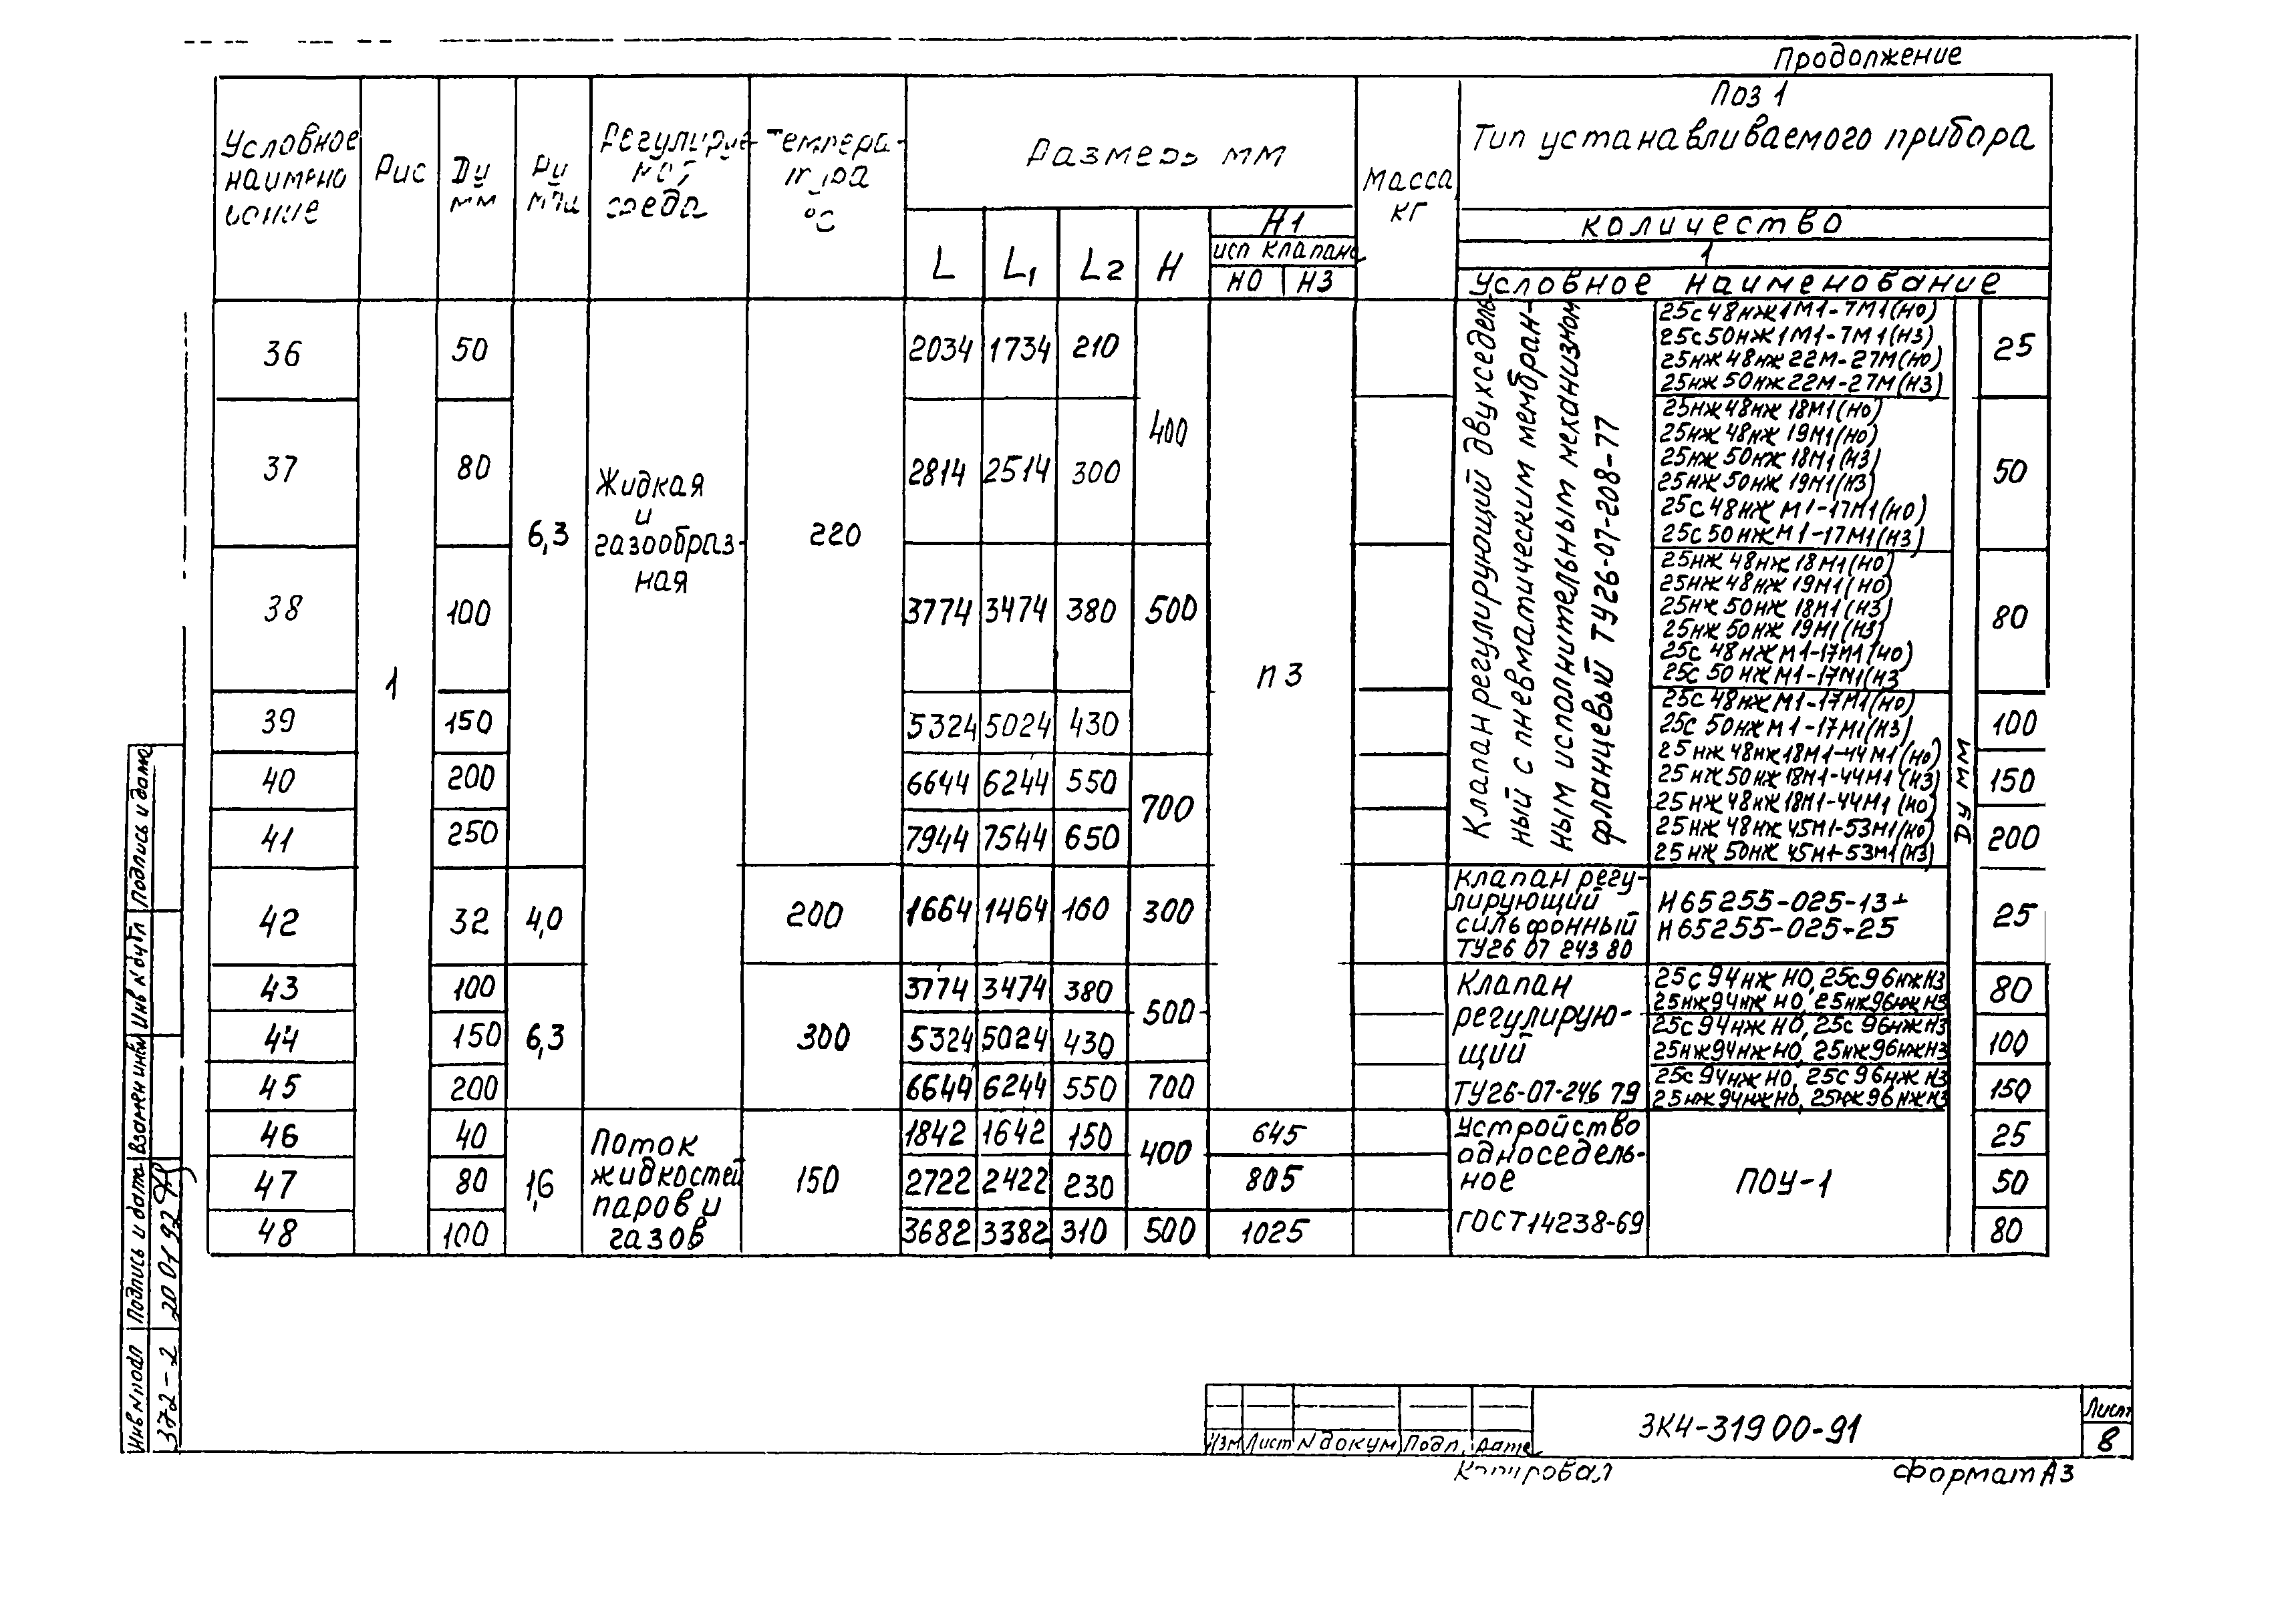 Продолжение
Условное наимено вание
Рис
Dу мм
Ру мПа
Регулируе- мая среда
Темпера- тура °С
Размеры мм
L
L1
L2
H
H1
исп клапана
НО НЗ
Масса кг
Поз 1
Тип устанавливаемого прибора
количество
1
Условное наименование
36 50 2034 1734 210 25
37 80 2814 2514 300 50
38 100 3774 3474 380 500 80
39 150 5324 5024 430 100
40 200 6644 6244 550 150
41 250 7944 7544 650 200
1
6,3
Жидкая
и
газообраз-
ная
220
400
700
п 3
Клапан регулирующий двухседель
ный с пневматическим мембран-
ным исполнительным механизмом
фланцевый ТУ26-07-208-77
25с48нж1М1-7М1(НО)
25с50нж1М1-7М1(НЗ)
25нж48нж22М-27М(НО)
25нж50нж22М-27М(НЗ)
25нж48нж18М1(НО)
25нж48нж19М1(НО)
25нж50нж18М1(НЗ)
25нж50нж19М1(НЗ)
25с48нжМ1-17М1(НО)
25с50нжМ1-17М1(НЗ)
25нж48нж18М1(НО)
25нж48нж19М1(НО)
25нж50нж18М1(НЗ)
25нж50нж19М1(НЗ)
25с48нжМ1-17М1(НО)
25с50нжМ1-17М1(НЗ
25с48нжМ1-17М1(НО)
25с50нжМ1-17М1(НЗ)
25нж48нж18М1-44М1(НО)
25нж50нж18М1-44М1(НЗ)
25нж48нж18М1-44М1(НО)
25нж48нж45М1-53М1(НО)
25нж50нж45М1-53М1(НЗ)
Ду мм
42 32 4,0 200 1664 1464 160 300 25
Клапан регу-
лирующий
сильфонный
ТУ26 07 243 80
И65255-025-13÷
И65255-025-25
43 100 3774 3474 380 80
44 150 6,3 300 5324 5024 430 500 100
45 200 6644 6244 550 700 150
Клапан
регулирую-
щий
ТУ26-07-246 79
25с94нж НО, 25с96нжНЗ
25нж94нж НО, 25нж96нжНЗ
25с94нжНО, 25с96нжНЗ
25нж94нжНО, 25нж96нжНЗ
25с94нжНО, 25с96нжНЗ
25нж94нжНО, 25нж96нжНЗ
46 40 1842 1642 150 645 25
47 80 1,6 150 2722 2422 230 400 805 50
48 100 3682 3382 310 500 1025 80
Поток
жидкостей
паров и
газов
Устройство
односедель-
ное
ГОСТ14238-69
ПОУ-1
Инв N подл Подпись и дата Взамен инв N Инв N дубл Подпись и дата
372-2 20 01 92
Изм Лист N докум Подл. Дата
3К4-319 00-91
Лист
8
Копировал
Формат А3